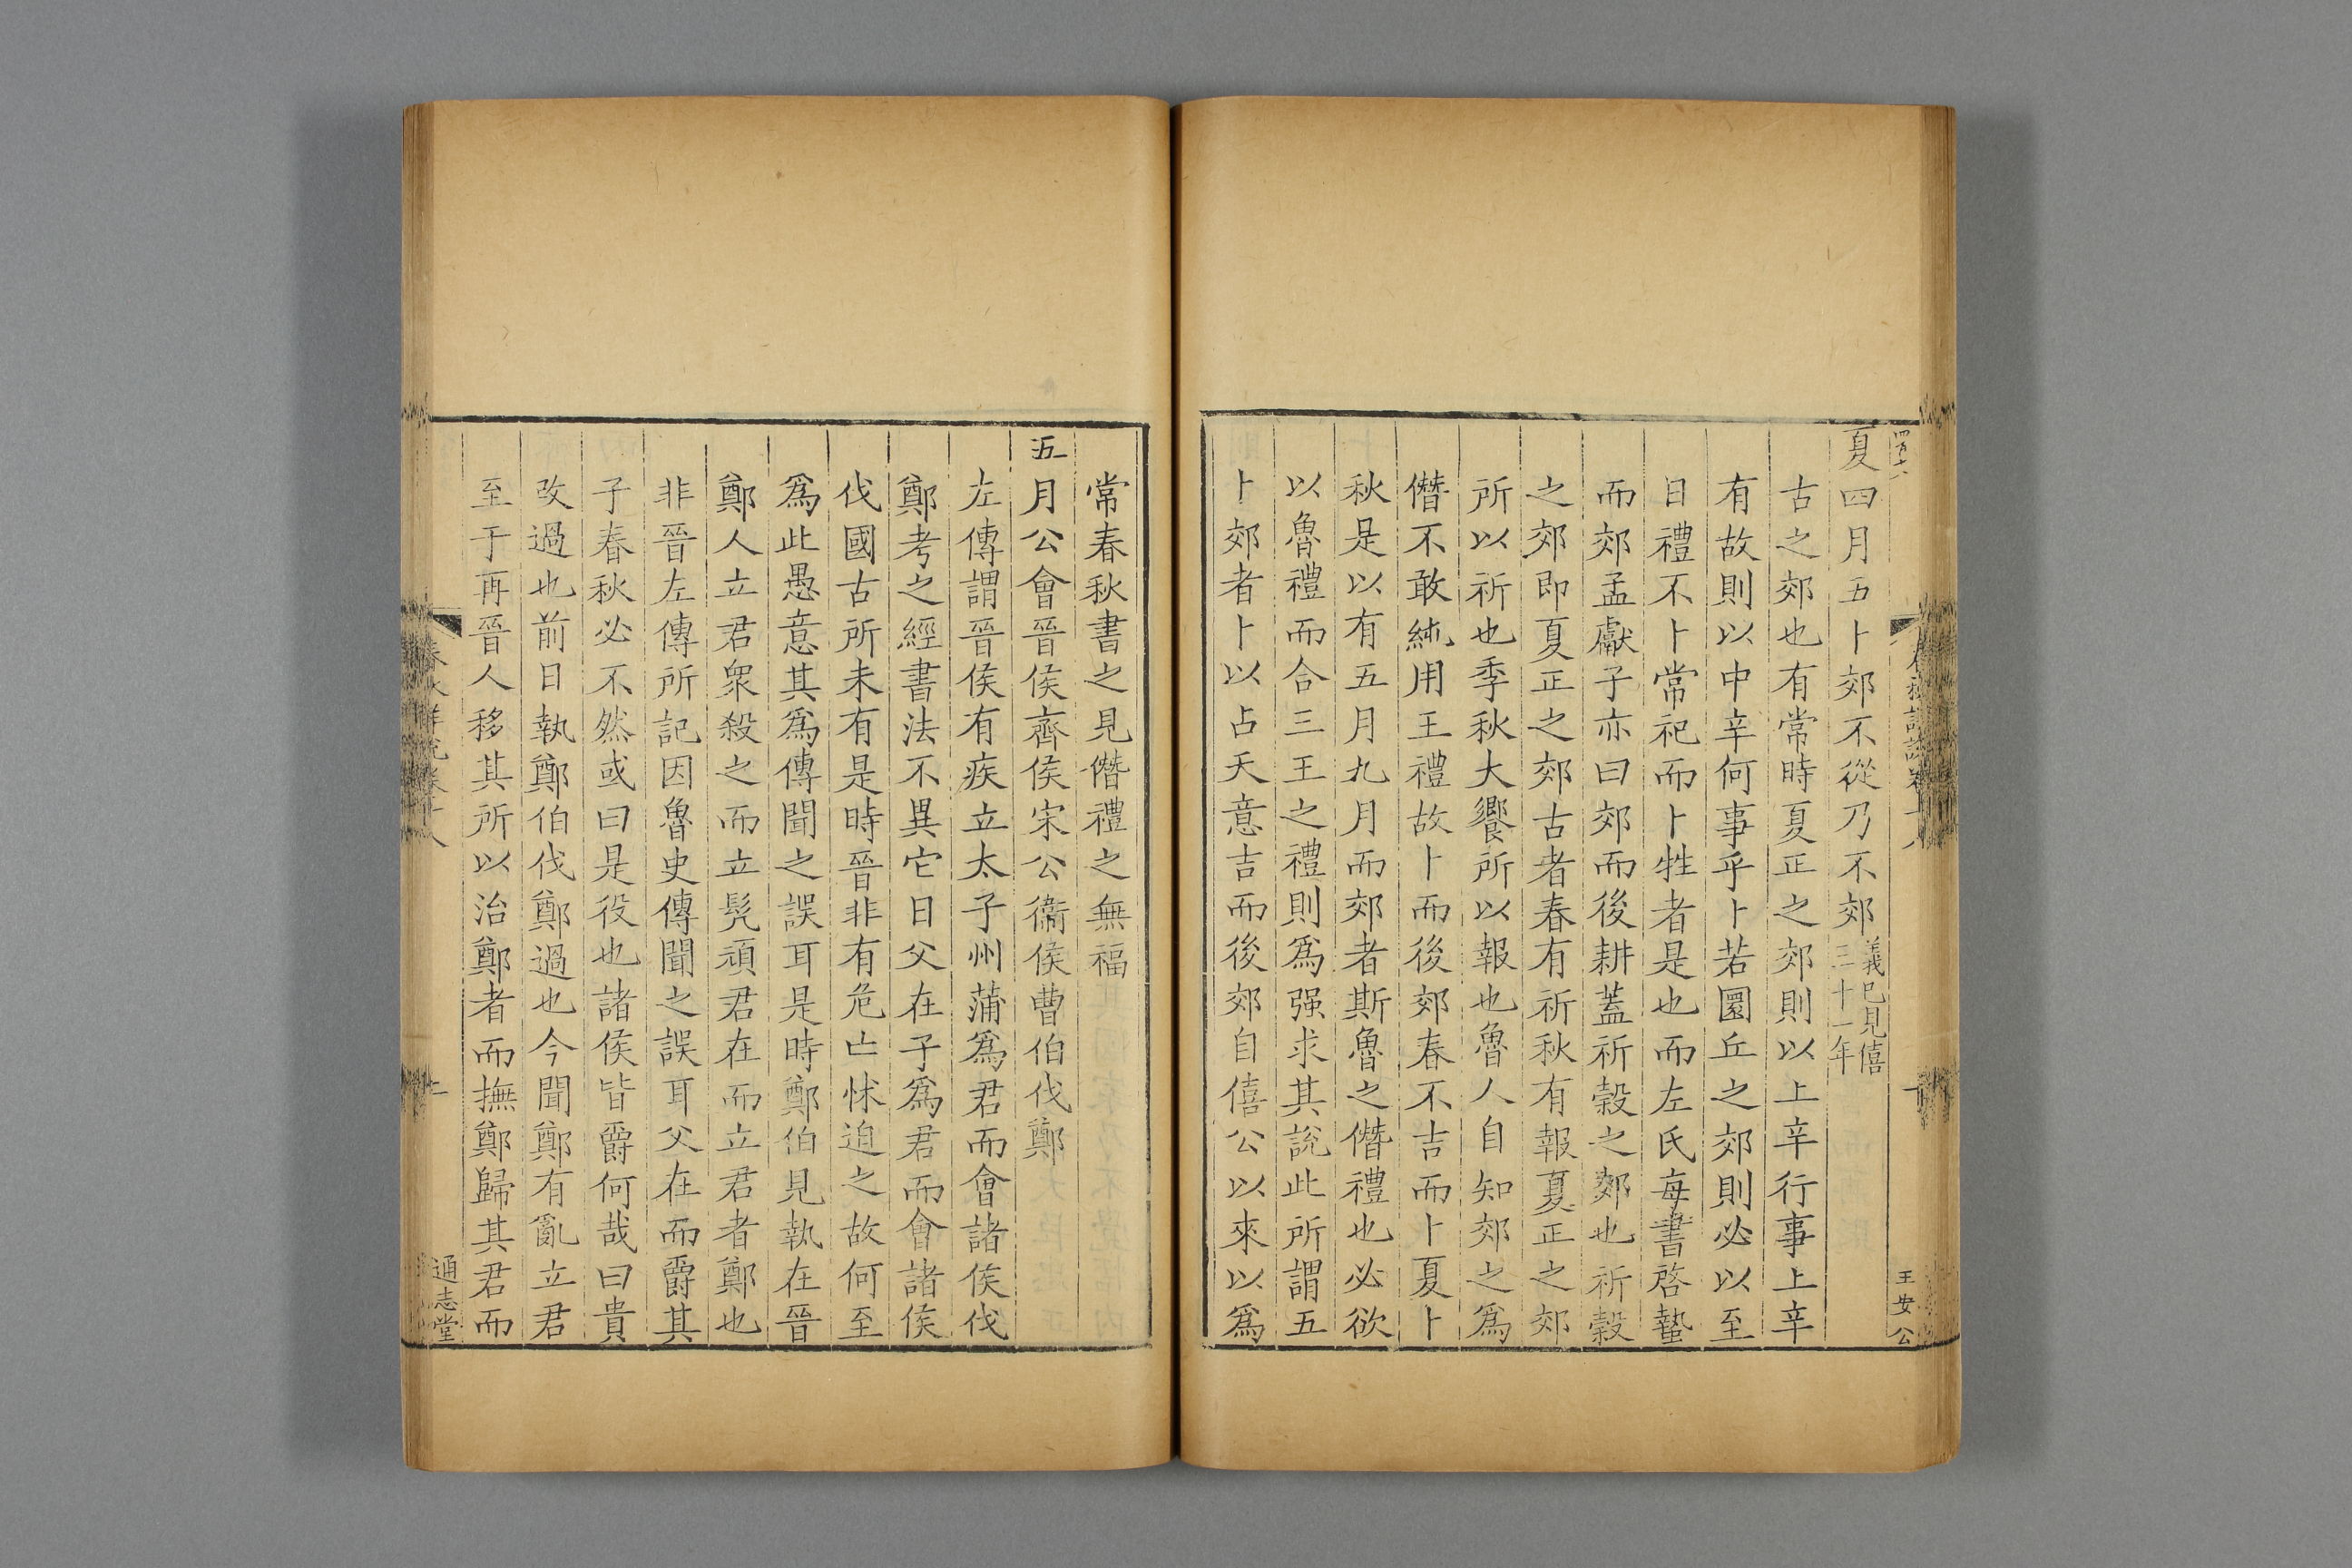 夏四月五卜郊不從乃不郊義已見僖三十一年
古之郊也有常時夏正之郊則以上辛行事上辛
有故則以中辛何事乎卜若圜丘之郊則必以至
日禮不卜常祀而卜牲者是也而左氏每書啓蟄
而郊孟獻子亦曰郊而後耕蓋祈穀之郊也祈穀
之郊即夏正之郊古者春有祈秋有報夏正之郊
所以祈也季秋大饗所以報也魯人自知郊之爲
僭不敢純用王禮故卜而後郊春不吉而卜夏卜
秋是以有五月九月而郊者斯魯之僭禮也必欲
以魯禮而合三王之禮則爲强求其說此所謂五
卜郊者卜以占天意吉而後郊自僖公以來以爲
王安公
常春秋書之見僭禮之無福
五月公會晉侯齊侯宋公衞侯曹伯伐鄭
左傳謂晉侯有疾立太子州蒲爲君而會諸侯伐
鄭考之經書法不異它日父在子爲君而會諸侯
伐國古所未有是時晉非有危亡怵迫之故何至
爲此愚意其爲傳聞之誤耳是時鄭伯見執在晉
鄭人立君衆殺之而立髡頑君在而立君者鄭也
非晉左傳所記因魯史傳聞之誤耳父在而爵其
子春秋必不然或曰是役也諸侯皆爵何哉曰貴
改過也前日執鄭伯伐鄭過也今聞鄭有亂立君
至于再晉人移其所以治鄭者而撫鄭歸其君而
通志堂